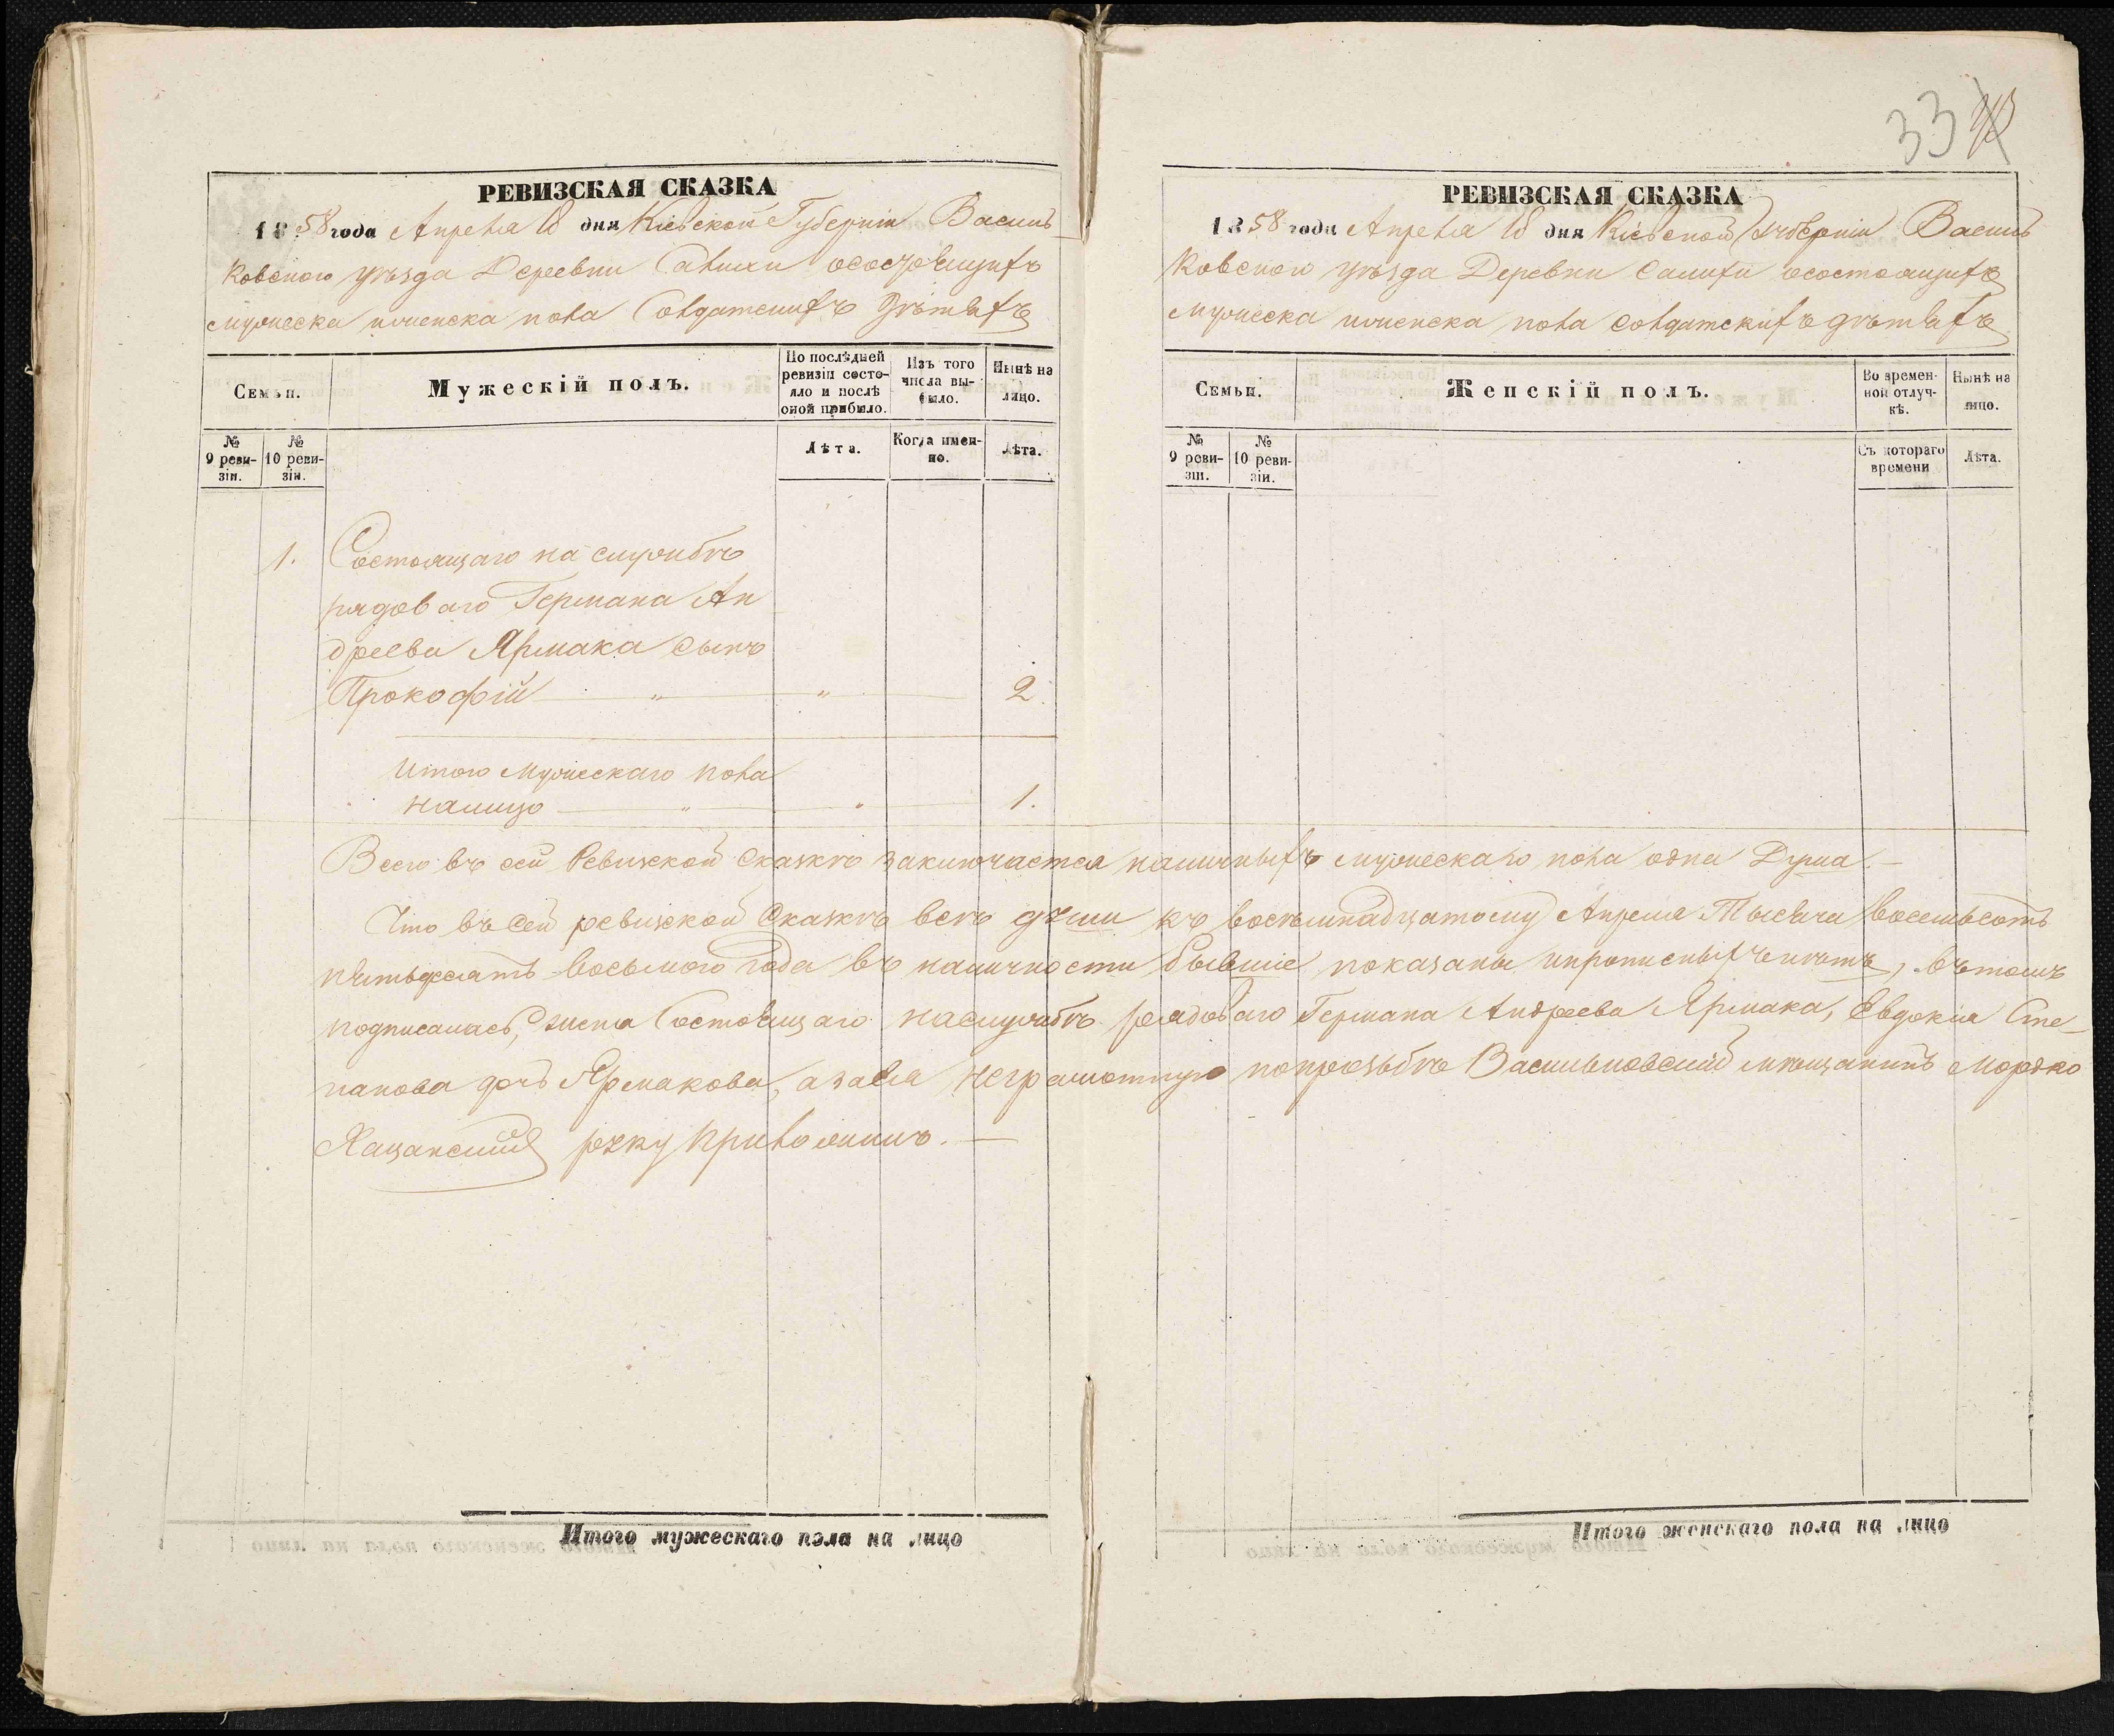 33
РЕВИЗСКАЯ СКАЗКА
1858 года Апреля 18 дня Кіевской Губерніи Василь-
ковского уѣзда Деревни Салихи осостоящихъ
мужеска иженска пола Солдатскихъ дѣтяхъ
Семьи.
Мужескій полъ.
По послѣдней ревизіи состо-
яло и послѣ
оной прибыло.
Изъ того
числа вы-
было.
Нынѣ на
лицо.
№
9 реви-
зіи.
№
10 реви-
зіи.
Лѣта.
Когда имен-
но.
Лѣта.
1. Состоящаго на службѣ
рядоваго Германа Ан
дреева Ярмака сынъ
Прокофій — " — " — 2.
Итого мужескаго пола
налицо — " — " — 1.
РЕВИЗСКАЯ СКАЗКА
1858 года Апреля 18 дня Кіевской Губерніи Василь
ковского уѣзда Деревни Салихи осостоящихъ
мужеска иженска пола солдатскихъ дѣтяхъ
Семьи.
Женскій полъ.
Во времен-
ной отлуч-
кѣ.
Нынѣ на
лицо.
№
9 реви-
зіи.
№
10 реви-
зіи.
Съ котораго
времени
Лѣта.
Всего въ сей Ревизской Сказкѣ заключается наличныхъ мужескаго пола одна Душа. —
Что въ сей ревизской Сказкѣ всѣ души къ восѣмнадцатому Апреля Тысяча восемьсотъ
пятьдесятъ восьмого года въ наличности бывшіе показаны ипрописныхъ нѣтъ, вътомъ
подписалась, жена Состоящаго наслужбѣ рядоваго Германа Андреева Ярмака, Евдокія Сте-
панова дочь Ярмакова, азанея неграмотную попрозьбѣ Васильковскій мѣщанинъ Мордко
руку приложилъ. —
Итого мужескаго пола на лицо
Итого женскаго пола на лицо